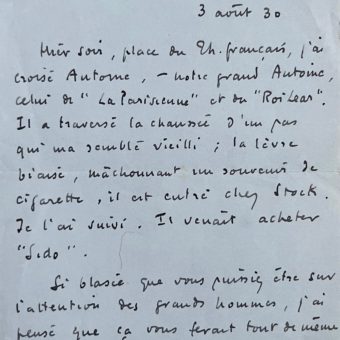 3 août 30
Hier soir, place du Th. français, j'ai
croisé Antoine, – notre grand Antoine,
celui de "La Parisienne" et du "Roi Lear".
Il a traversé la chaussée d'un pas
qui m'a semblé vieilli ; la lèvre
biaisé, mâchonnant un souvenir de
cigarette, il est entré chez Stock.
Je l'ai suivi. Il venait acheter
"Sido".
Si blasée que vous puissiez être sur
l'attention des grands hommes, j'ai
pensé que ça vous ferait tout de même